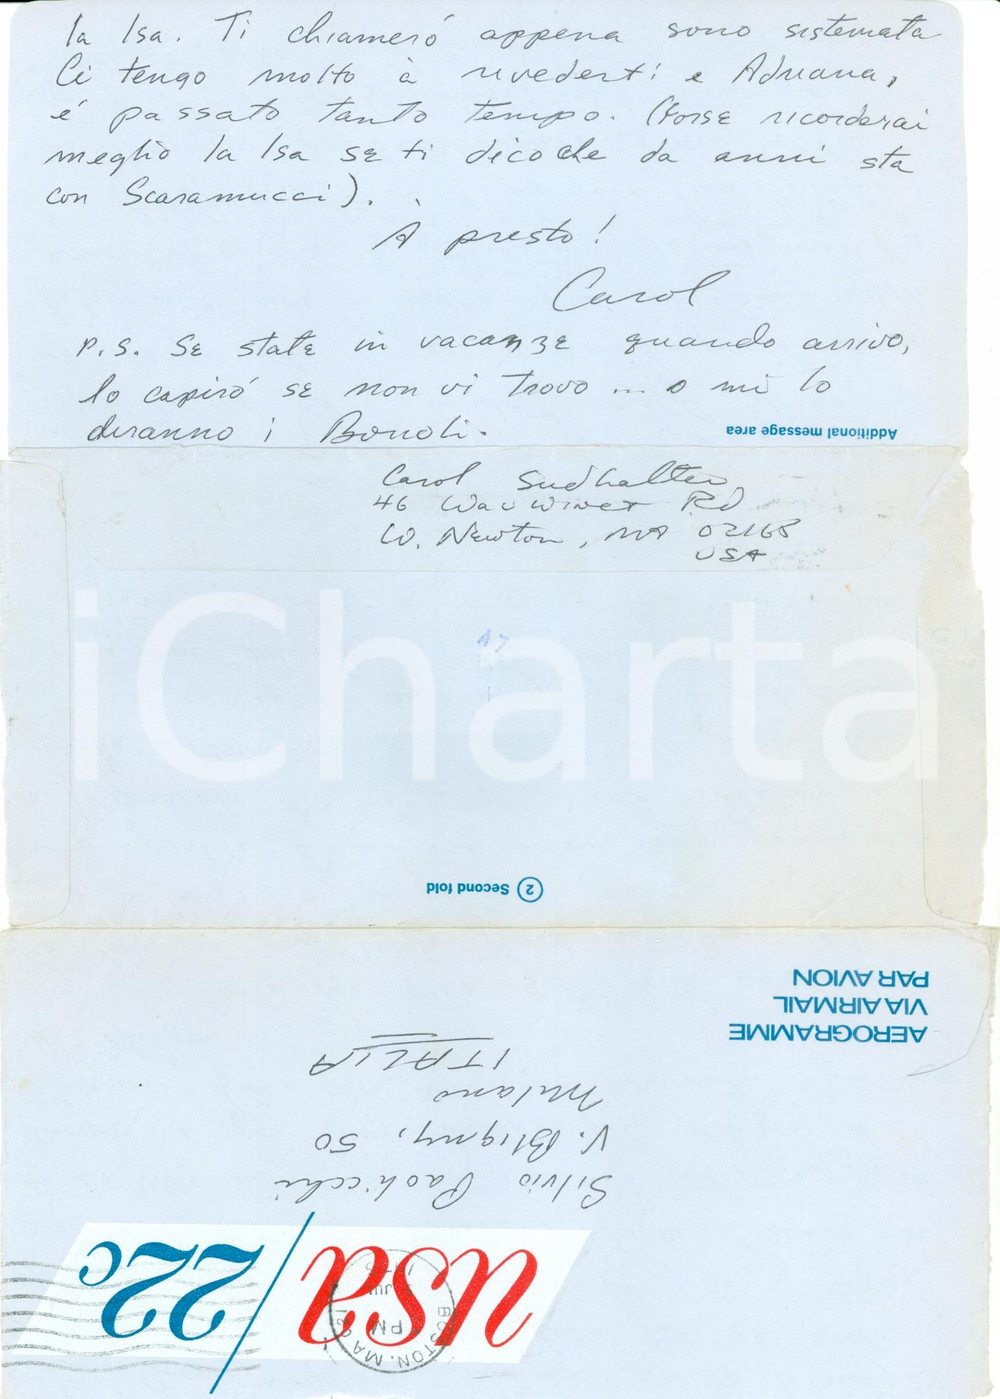 la Isa. Ti chiameró appena sono sistemata
Ci tengo molto à rivederti e Adriana,
é passato tanto tempo. (Forse ricorderai
meglio la Isa se ti dico che da anni sta
con Scaramucci).
A presto!
Carol
P.S. Se state in vacanze quando arrivo,
lo capiró se non vi trovo ... o mi lo
diranno i Bonoli.
Additional message area
Carol Sudhalter
46 Wauwinet RD
W. Newton, MA 02168
USA
iCharta
17
2 Second fold
AEROGRAMME
VIA AIRMAIL
PAR AVION
Silvio Paolicchi
V. Bligny, 50
Milano
ITALIA
USA/22c
BOSTON, MA
PM